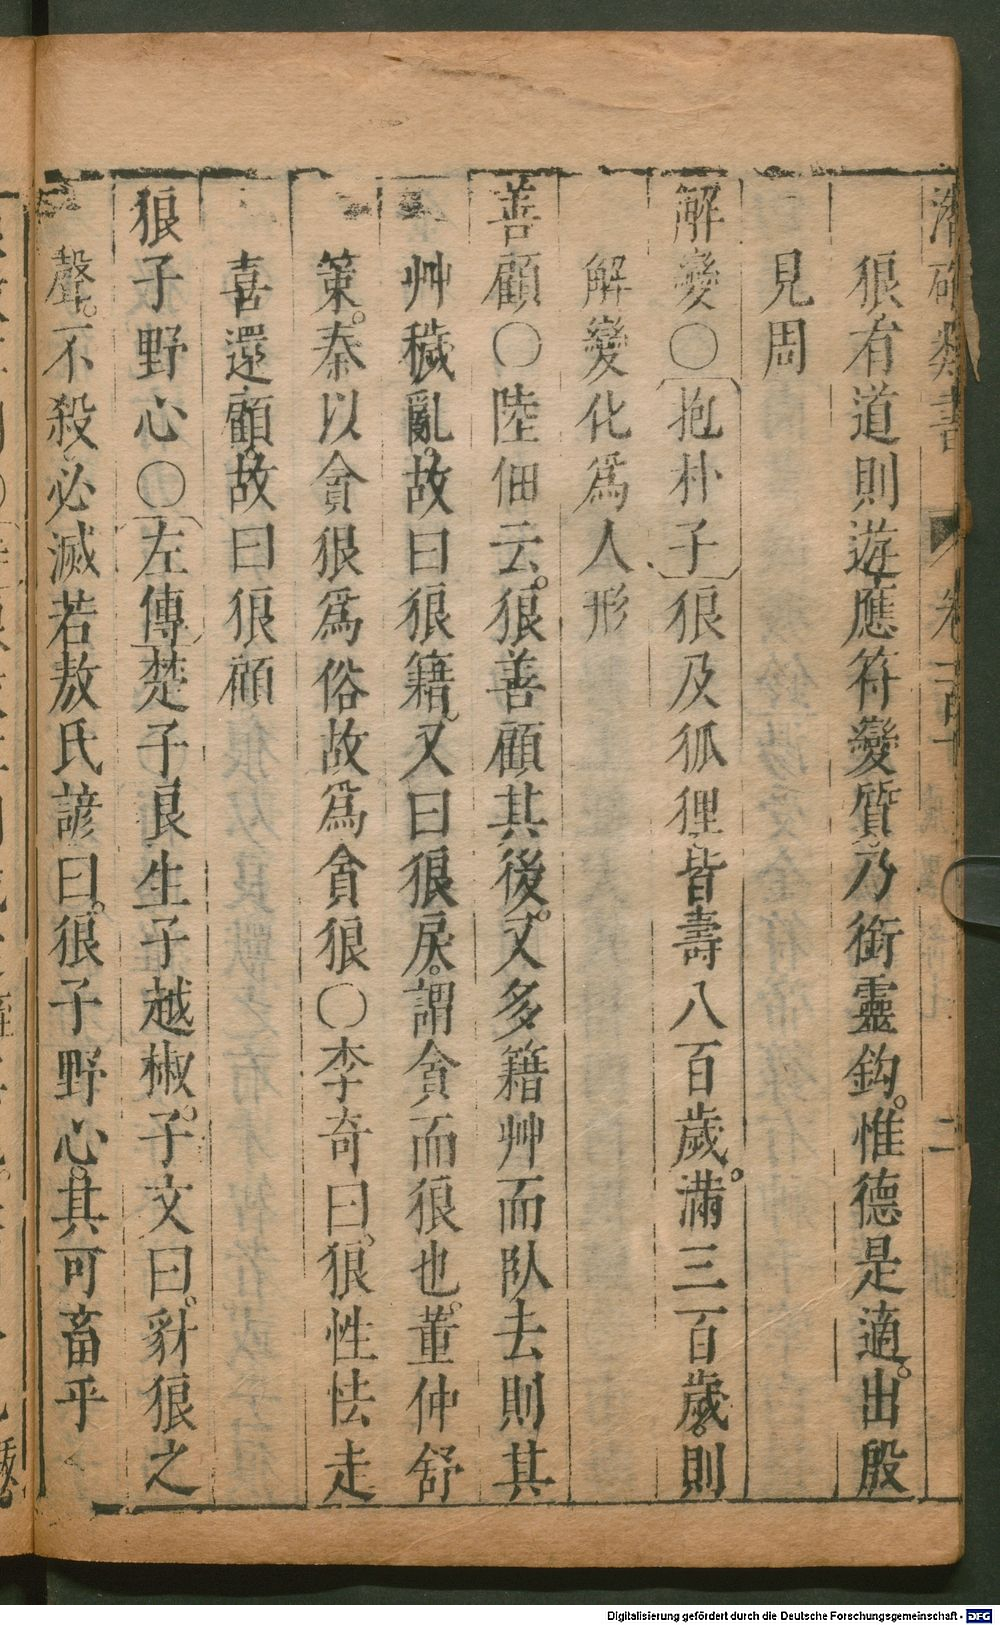 潛確類書 卷一百十 二
狼有道則遊應符變質乃銜靈鈎。惟德是適。出殷
見周
解變〇抱朴子狼及狐狸皆壽八百歲。滿三百歲。則
解變化爲人形
善顧〇陸佃云。狼善顧其後。又多籍艸而臥去則其
艸穢亂。故曰狼籍。又曰狠戾。謂貪而狼也。董仲舒
策。秦以貪狠爲俗故爲貪狼〇李奇曰。狼性怯走
喜還顧。故曰狼顧
狼子野心〇左傳楚子良生子越椒。子文曰。豺狼之
聲。不殺必滅若敖氏諺曰。狼子野心。其可畜乎
Digitalisierung gefördert durch die Deutsche Forschungsgemeinschaft - DFG